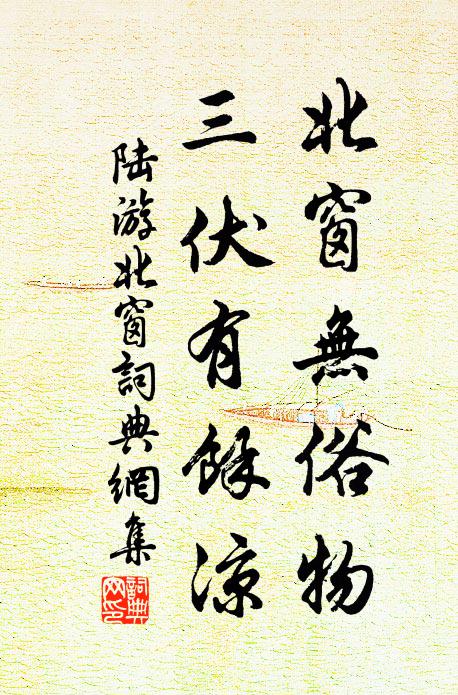 北窗無俗物
三伏有餘涼
陆游北窗詞典網集
詞典
网印